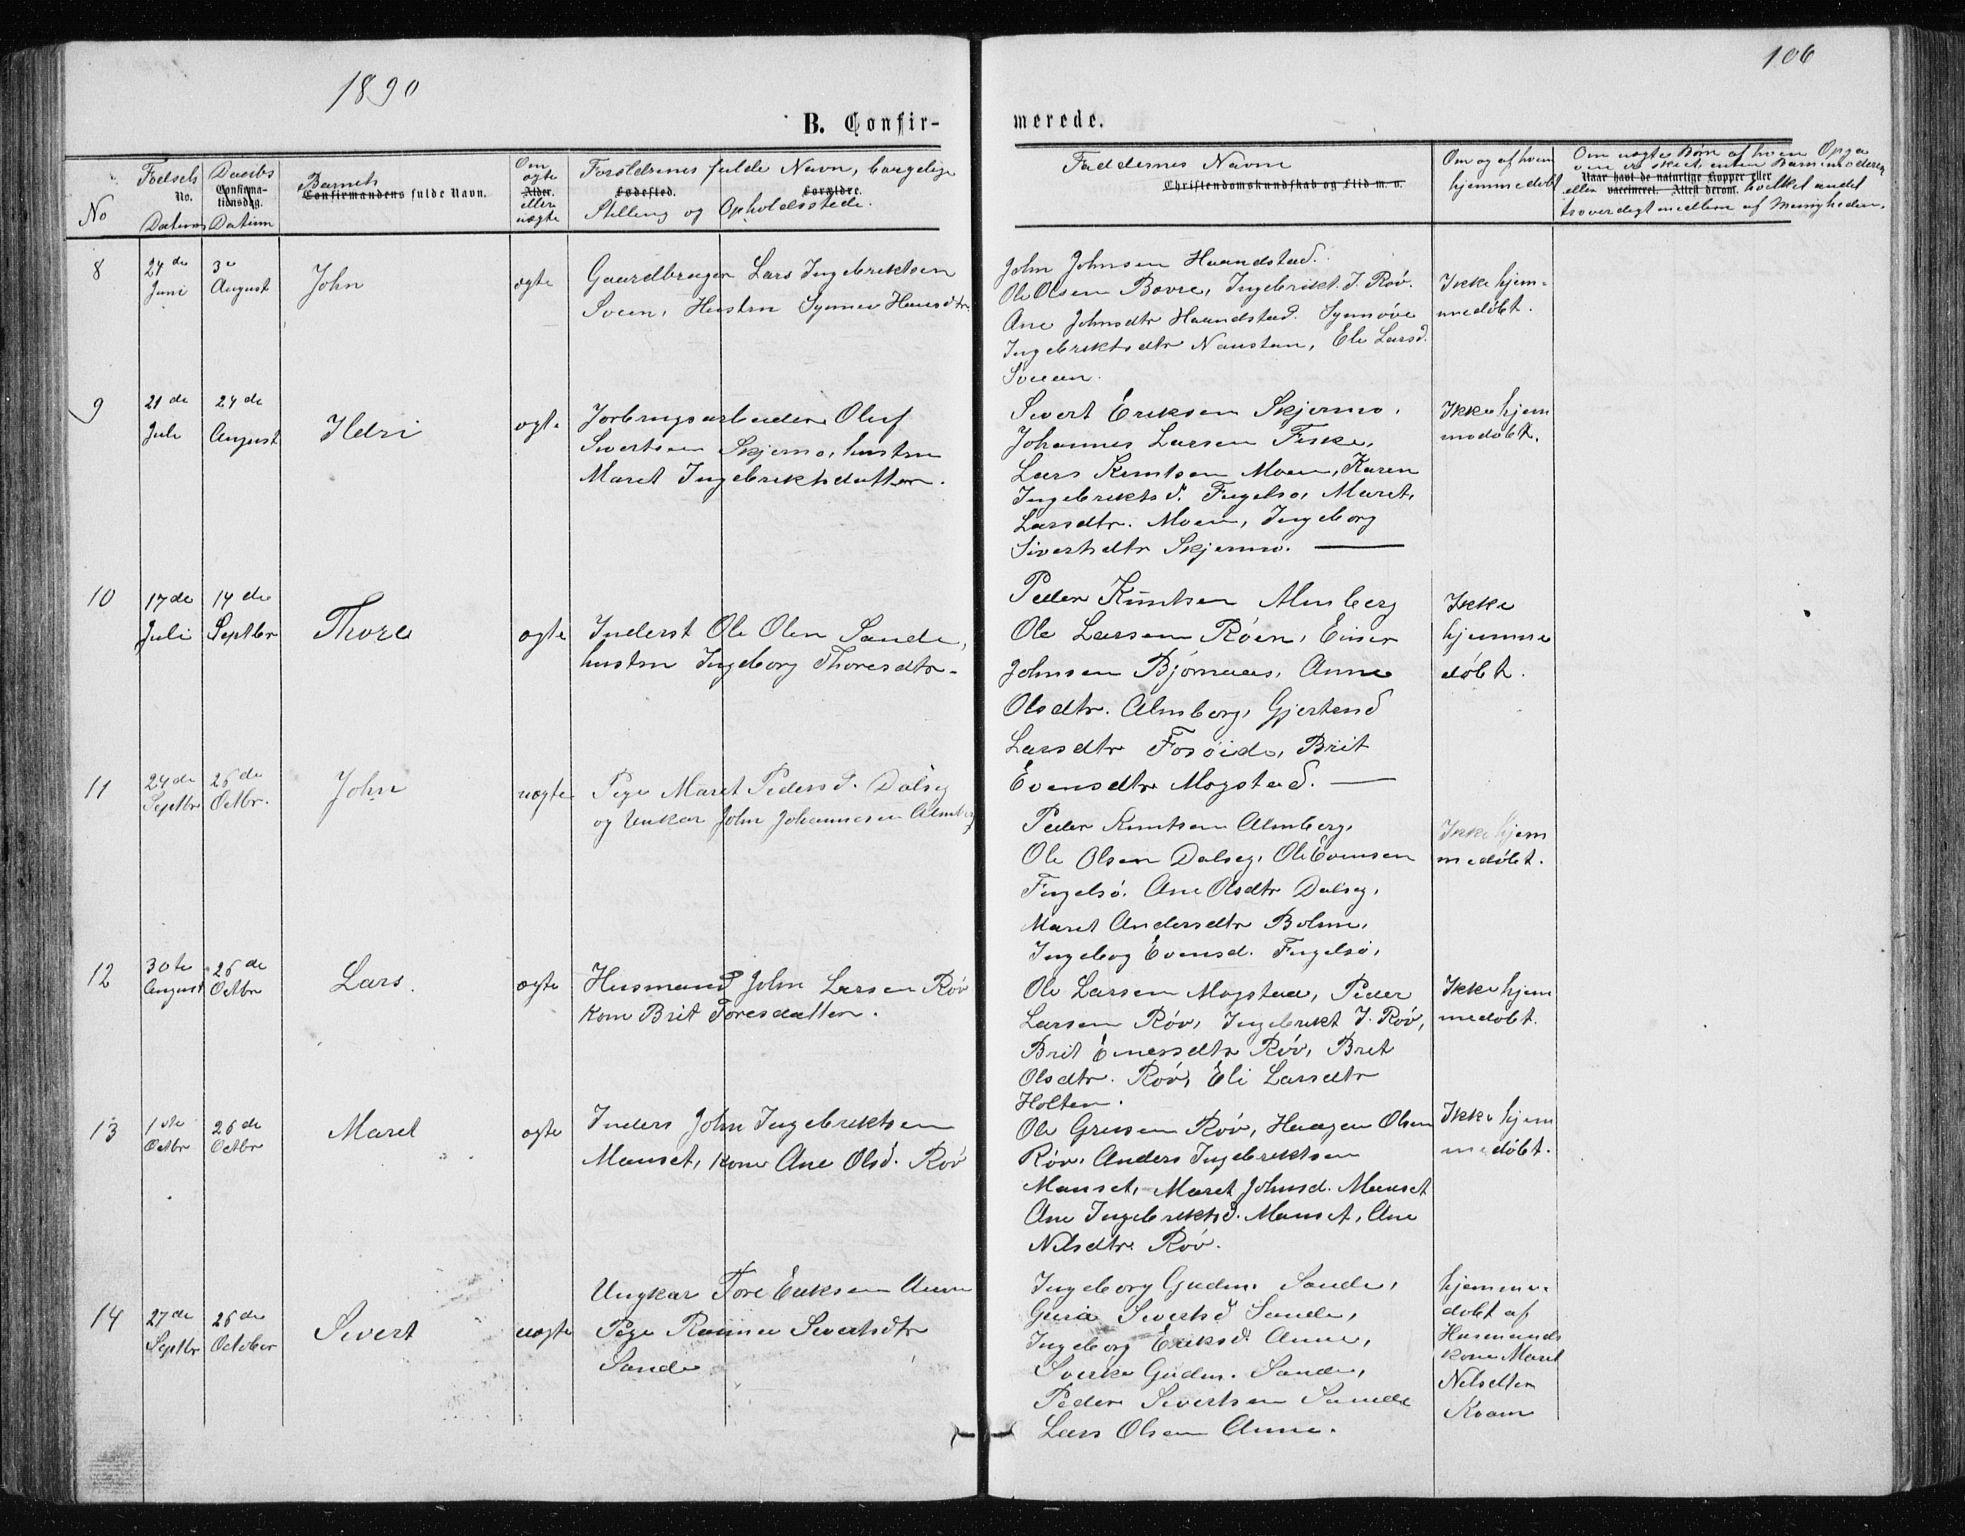 1890
106
B. Confir-
merede.
No
Fødsels No. Datum
Daabs Confirmationsdag. Datum
Barnets Confirmandens fulde Navn.
Om ægte Alder. eller uægte
Forældrenes fulde Navn, borgelige
Fødested. Forældre.
Stilling og Opholdsstede.
Faddernes Navne
Christendomskundskab og Flid m. v.
Om og af hvem
hjemmedøbt
Om uægte Børn af hvem Opga
Naar havt de naturlige Kopper eller
vaccineret. Attest derom. hvilket andet
troverdigt medlem af Menigheden.
8
24de Juni
3e August
John
ægte
Gaardbruger Lars Ingebriktsen
Sveen, Hustru Synnev Hansdtr.
John Johnsen Haandstad.
Ole Olsen Bovre, Ingebrikt. J. Røv.
Ane Johnsdtr Haandstad. Synnøve
Ingebriktsdtr Naustan, Eli Larsd.
Sveen.
Ikke hjem-
medøbt.
9
21de Juli
24de August
Ildri
ægte
Jorbrugsarbeider Oluf
Sivertsen Skjermo, hustru
Maret Ingebriktsdatter.
Sivert Eriksen Skjermo,
Johannes Larsen Fiske,
Lars Knutsen Moen, Karen
Ingebriktsd. Fugelsø, Maret
Larsdtr. Moen, Ingeborg
Sivertsdtr Skjermo.
Ikke hjem
medøbt.
10
17de Juli
14de Septbr
Thore
ægte
Inderst Ole Olsen Sande,
hustru Ingeborg Thoresdtr.
Peder Knutsen Almberg
Ole Larsen Røen, Einer
Johnsen Bjørnaas, Anne
Olsdtr. Almberg, Gjertrud
Larsdtr Fosøide, Brit
Evensdtr Mogstad.
Ikke
hjemme
døbt.
11
24de Septbr
26de Octbr.
John
uægte
Pige Maret Pedersd. Dalseg
og Unkar John Johannesen Almberg
Peder Knutsen Almberg,
Ole Olsen Dalseg, Ole Evensen
Fugelsø. Ane Olsdtr Dalseg,
Maret Andersdtr Bolme,
Ingebog Evensd. Fugelsø,
Ikke hjem
medøbt.
12
30te August
26de Octbr
Lars
ægte
Husmand John Larsen Røv
kone Brit Toresdatter.
Ole Larsen Mogstad, Peder
Larsen Røv, Ingebrikt J. Røv,
Brit Einersdtr Røv, Bret
Olsdtr. Røv, Eli Larsdtr
Holten.
Ikke hjem
medøbt.
13
1ste Octbr
26de Octbr
Maret
ægte
Inders John Ingebriktsen
Manset, kone Ane Olsd. Røv
Ole Gresen Røv, Haagen Olsen
Røv, Anders Ingebriktsen
Manset, Maret Johnsd. Manset
Ane Ingebriktsd. Manset, Ane
Nilsdtr. Røv.
Ikke hjem
medøbt.
14
27de Septbr
26de October
Sivert
uægte
Ungkar Tore Eriksen Aune
Pige Sivertsdtr
Sande
Ingeborg Gudm. Sande,
Guria Sivertsd Sande,
Ingeborg Eriksd. Aune,
Sverke Gudm. Sande,
Peder Sivertsen Sande
Lars Olsen Aune.
hjemme-
døbt af
Husmands
kone Maret
Nilsdter
Kvam